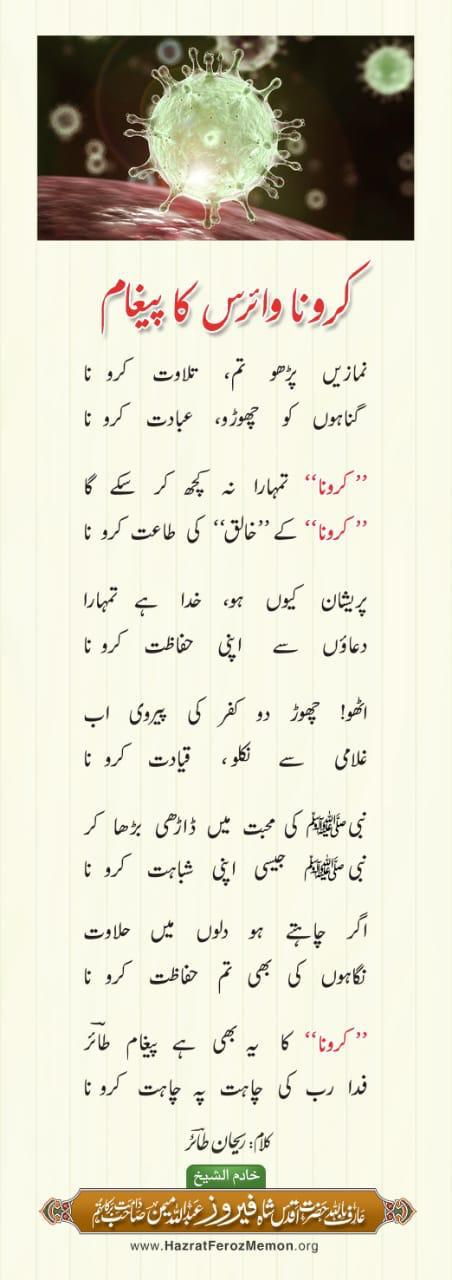 کرونا وائرس کا پیغام
نمازیں پڑھو تم، تلاوت کرو نا
گناہوں کو چھوڑو، عبادت کرو نا
”کرونا“ تمہارا نہ کچھ کر سکے گا
”کرونا“ کے ”خالق“ کی طاعت کرو نا
پریشان کیوں ہو، خدا ہے تمہارا
دعاؤں سے اپنی حفاظت کرو نا
اٹھو! چھوڑ دو کفر کی پیروی اب
غلامی سے نکلو، قیادت کرو نا
نبی ﷺ کی محبت میں ڈاڑھی بڑھا کر
نبی ﷺ جیسی اپنی شباہت کرو نا
اگر چاہتے ہو دلوں میں حلاوت
نگاہوں کی بھی تم حفاظت کرو نا
”کرونا“ کا یہ بھی ہے پیغام طائرؔ
فدا رب کی چاہت پہ چاہت کرو نا
کلام: ریحان طائرؔ
خادم الشیخ
عارف باللہ حضرت اقدس شاہ فیروز عبداللہ میمن صاحب دامت برکاتہم
www.HazratFerozMemon.org